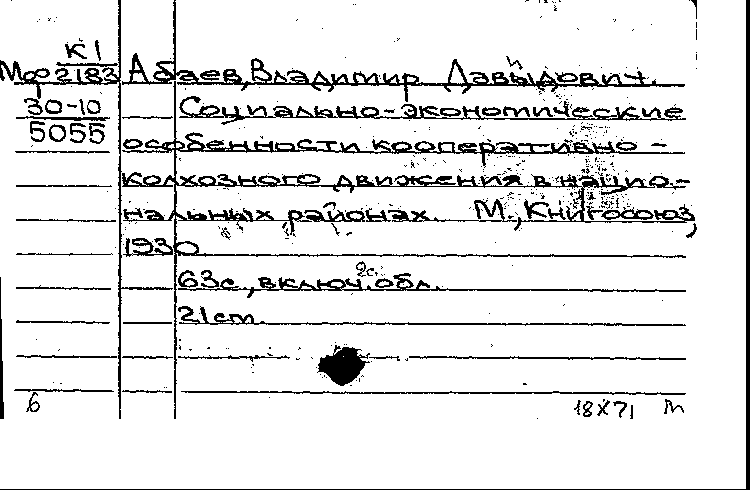 К1
Мф 2183 Абаев, Владимир Давыдович.
30-10 Социально-экономические
5055
особенности кооперативно-
колхозного движения в нацио-
нальных районах. М., Книгосоюз,
1930.
63с., включ. обл.
2с.
21 cm.
6
18 X 71